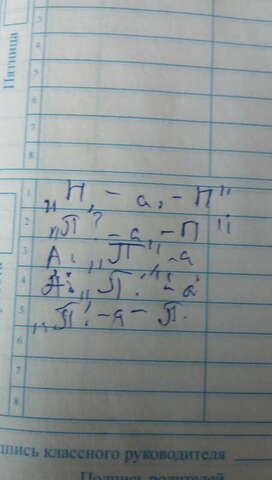 Пятница
3
4
5
6
7
8
1 „П, – а, – П"
2 „П? – а, – П"
3 А: „П", – а
4 А: „П!" – а
5 „П! – а – П.
6
7
8
дпись классного руководителя
Подпись родителей